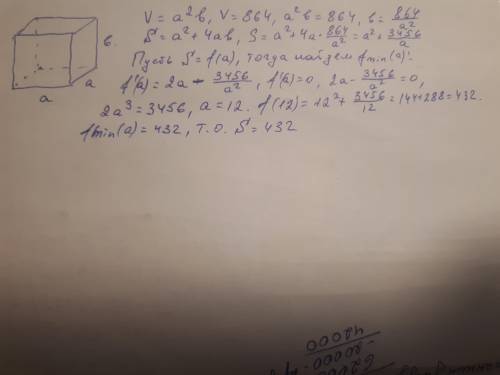 V = a²b, V = 864, a²b = 864, b = 864/a²
S = a² + 4ab, S = a² + 4a · 864/a² = a² + 3456/a
Пусть S = f(a), тогда найдем fmin(a):
f'(a) = 2a - 3456/a², f'(a) = 0, 2a - 3456/a² = 0,
2a³ = 3456, a = 12. f(12) = 12² + 3456/12 = 144 + 288 = 432.
fmin(a) = 432, т.о. S = 432
в.
a
a
48000